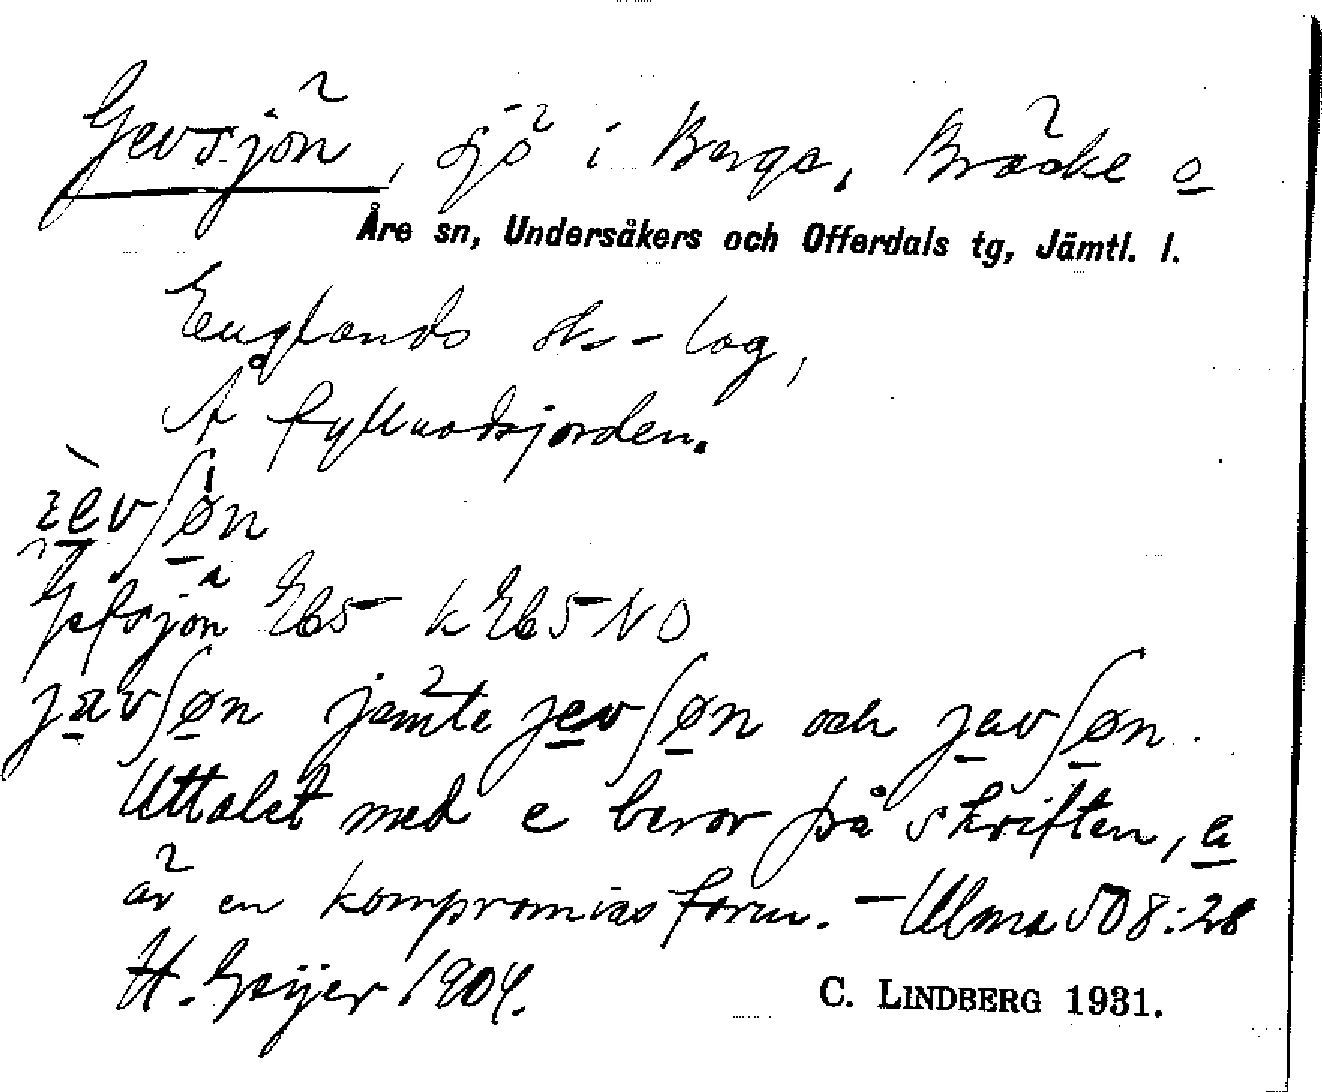 Gevsjön, sjö i Bergs, Bräcke o
Åre sn, Undersåkers och Offerdals tg, Jämtl. l.
Englands sk-lag,
Å fyllnadsjorden.
jevʃøn
Gefsjön Eb5 k Eb5 NO
javʃøn jämte jevʃøn och jævʃøn.
Uttalet med e beror på skriften, e
är en kompromissform. – Ulma 508:28
H. Geijer 1904.
C. LINDBERG 1931.